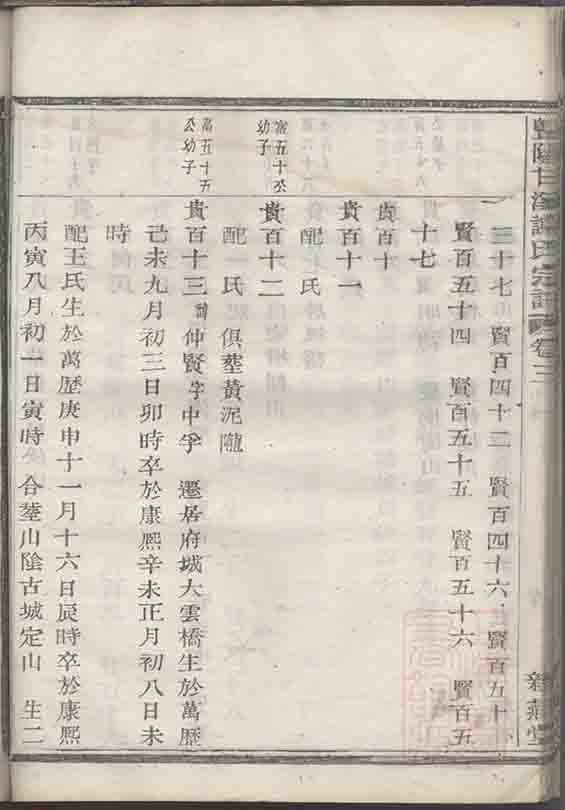 卷三
三十七 賢百四十二 賢百四十六 賢百五十
賢百五十四 賢百五十五 賢百五十六 賢百五
十七
貴百十
貴百十一
配氏
富五十公
幼子
貴百十二
配一氏 俱塟黃泥隴
富五十五
公幼子
貴百十三諱仲賢字中孚 遷居府城大雲橋生於萬歷
己未九月初三日卯時卒於康熙辛未正月初八日未
時
配王氏生於萬歷庚申十一月十六日辰時卒於康熙
丙寅八月初一日寅時 合塟山陰古城定山 生二